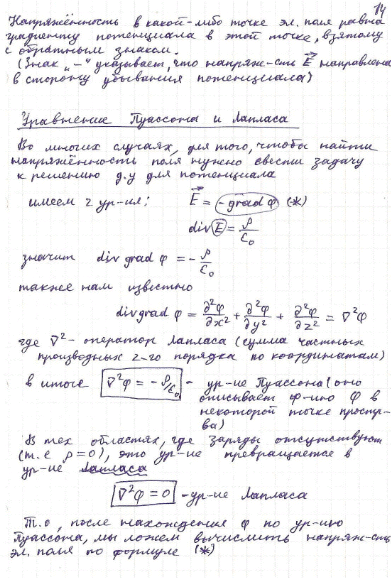 14
Напряжённость в какой-либо точке эл. поля равна
градиенту потенциала в этой точке, взятому
с обратным знаком.
(Знак „–" указывает, что напряж-сть E⃗ направлена
в сторону убывания потенциала)
Уравнение Пуассона и Лапласа
Во многих случаях, для того, чтобы найти
напряжённость поля нужно свести задачу
к решению д.у для потенциала
имеем 2 ур-ия: E⃗ = -grad φ (*)
div E⃗ = ρ/ε₀
значит div grad φ = - ρ/ε₀
также нам известно
div grad φ = ∂²φ/∂x² + ∂²φ/∂y² + ∂²φ/∂z² = ∇²φ
где ∇² - оператор Лапласа (сумма частных
производных 2-го порядка по координатам)
в итоге ∇²φ = -ρ/ε₀ - ур-ие Пуассона (оно
описывает ф-ию φ в
некоторой точке простр-
ва)
В тех областях, где заряды отсутствуют
(т.е ρ=0), это ур-ие превращается в
ур-ие Лапласа
∇²φ = 0 - ур-ие Лапласа
Т.о, после нахождения φ по ур-ию
Пуассона, мы можем вычислить напряж-сть
эл. поля по формуле (*)